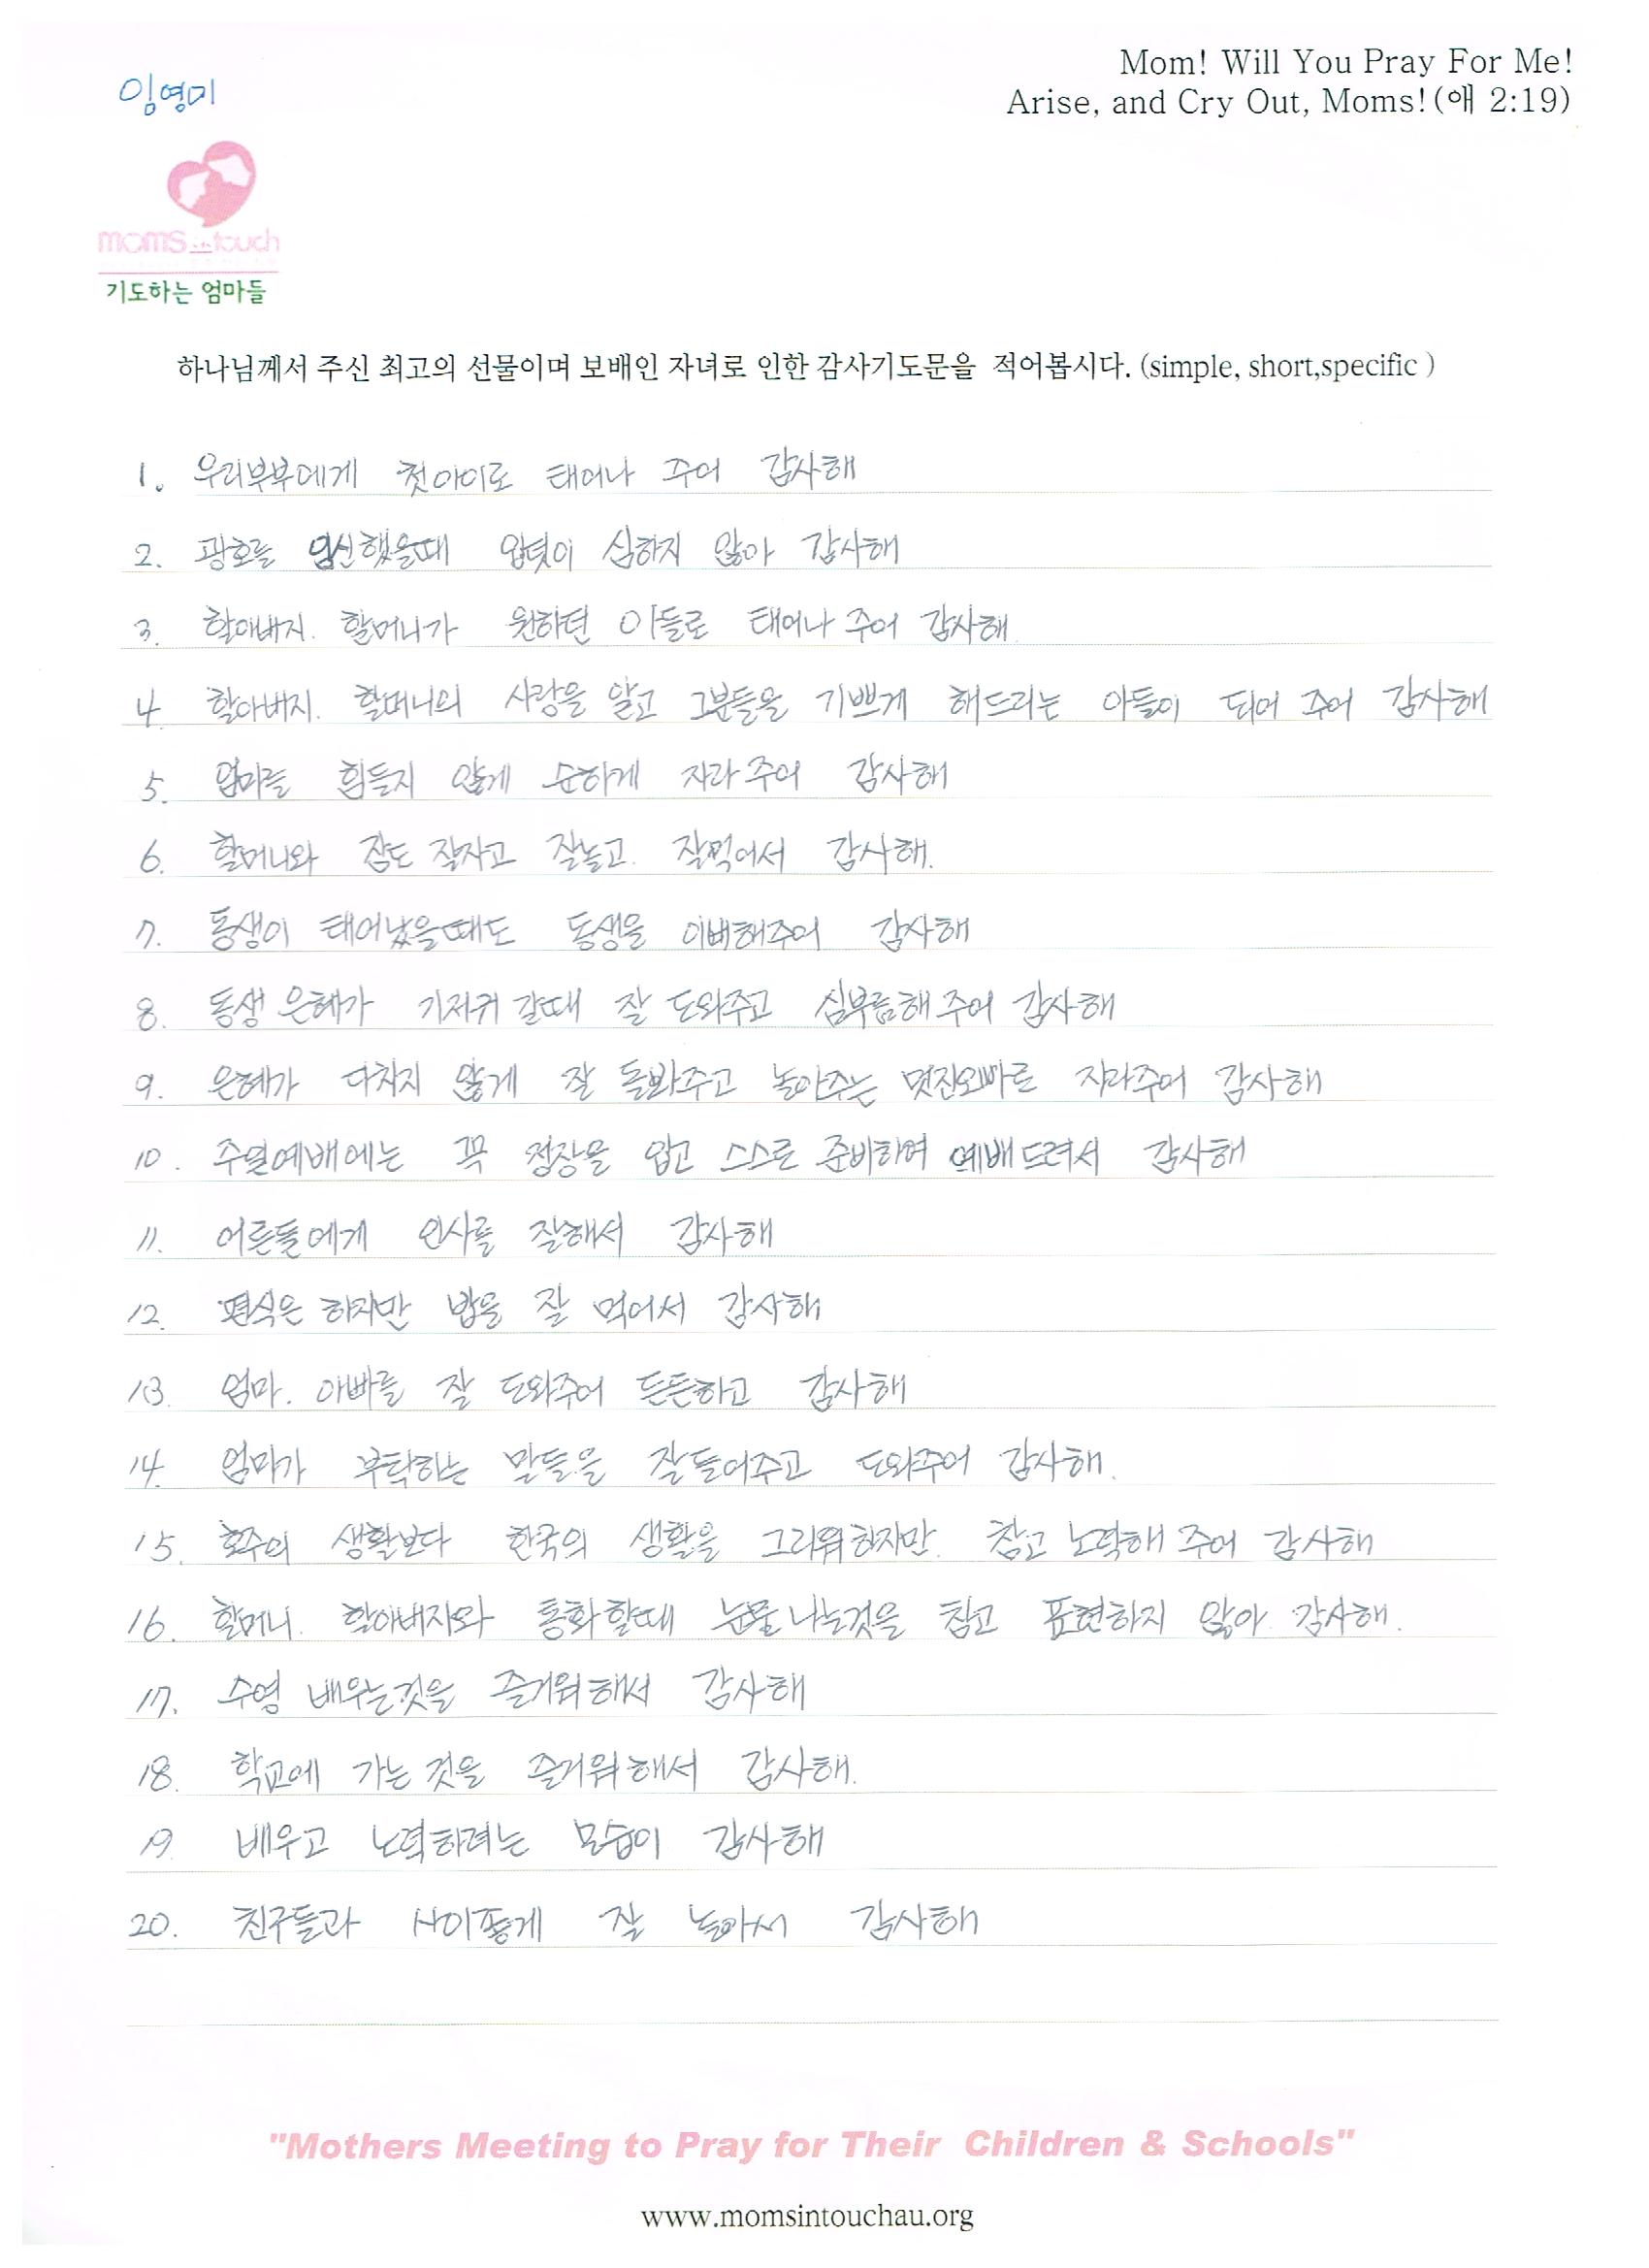 임영미
Mom! Will You Pray For Me!
Arise, and Cry Out, Moms!(애 2:19)
moms in touch
기도하는 엄마들
하나님께서 주신 최고의 선물이며 보배인 자녀로 인한 감사기도문을 적어봅시다. (simple, short,specific )
1. 우리부부에게 첫아이로 태어나 주어 감사해
2. 광호를 임신했을때 입덧이 심하지 않아 감사해
3. 할아버지. 할머니가 원하던 아들로 태어나 주어 감사해
4 할아버지. 할머니의 사랑을 알고 그분들을 기쁘게 해드리는 아들이 되어 주어 감사해
5. 엄마를 힘들지 않게 순하게 자라 주어 감사해
6. 할머니와 잠도 잘자고 잘놀고. 잘먹어서 감사해.
7. 동생이 태어났을때도 동생을 이뻐해주어 감사해
8. 동생 은혜가 기저귀 갈때 잘 도와주고 심부름해 주어 감사해
9. 은혜가 다치지 않게 잘 돌봐주고 놀아주는 멋진오빠로 자라주어 감사해
10. 주일예배에는 꼭 정장을 입고 스스로 준비하여 예배드려서 감사해
11. 어른들에게 인사를 잘해서 감사해
12. 편식은 하지만 밥을 잘 먹어서 감사해
13. 엄마. 아빠를 잘 도와주어 든든하고 감사해
14. 엄마가 부탁하는 말들을 잘들어주고 도와주어 감사해.
15. 호주의 생활보다 한국의 생활을 그리워하지만. 참고 노력해 주어 감사해
16. 할머니. 할아버지와 통화할때 눈물나는것을 참고 표현하지 않아 감사해.
17. 수영 배우는것을 즐거워해서 감사해
18. 학교에 가는 것을 즐거워해서 감사해.
19. 배우고 노력하려는 모습이 감사해
20. 친구들과 사이좋게 잘 놀아서 감사해
"Mothers Meeting to Pray for Their Children & Schools"
www.momsintouchau.org